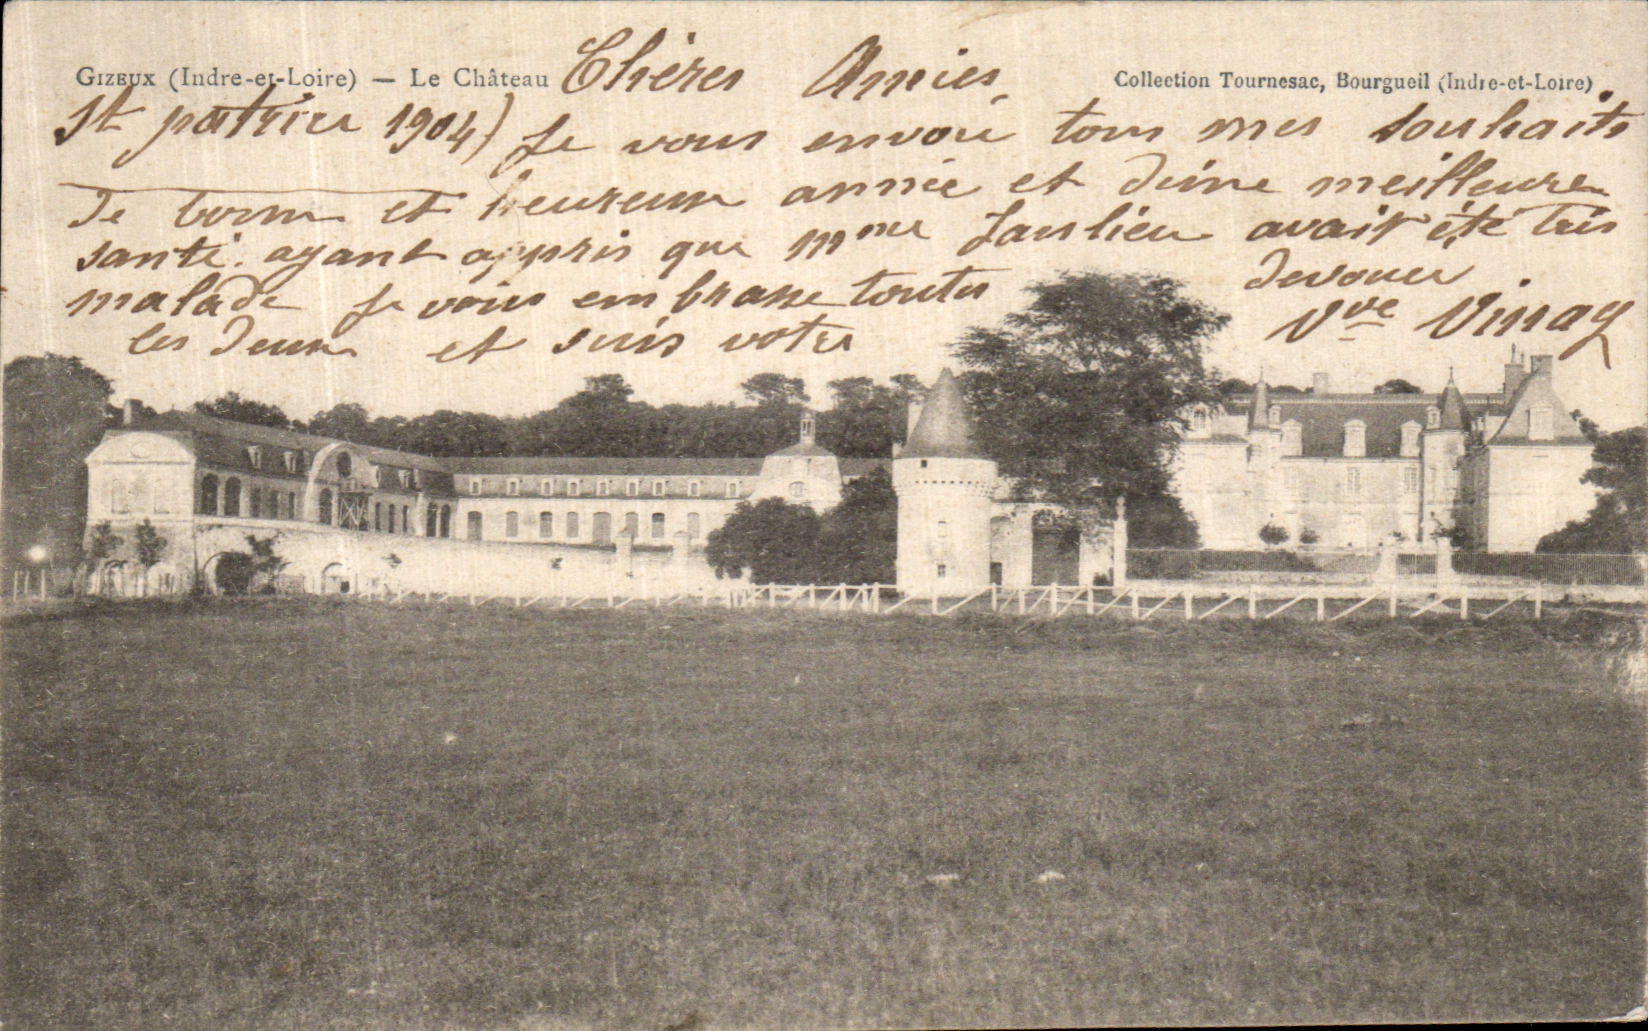 GIZEUX (Indre-et-Loire) — Le Château
Collection Tournesac, Bourgueil (Indre-et-Loire)
Chères Amies
St patrice 1904) Je vous envoie tous mes souhaits
de bonne et heureuse année et d'une meilleure
santé. ayant appris que Mme Jaulieu avait été très
malade je vous embrasse toutes
les deux et suis votre
devouée
Vve Vinay